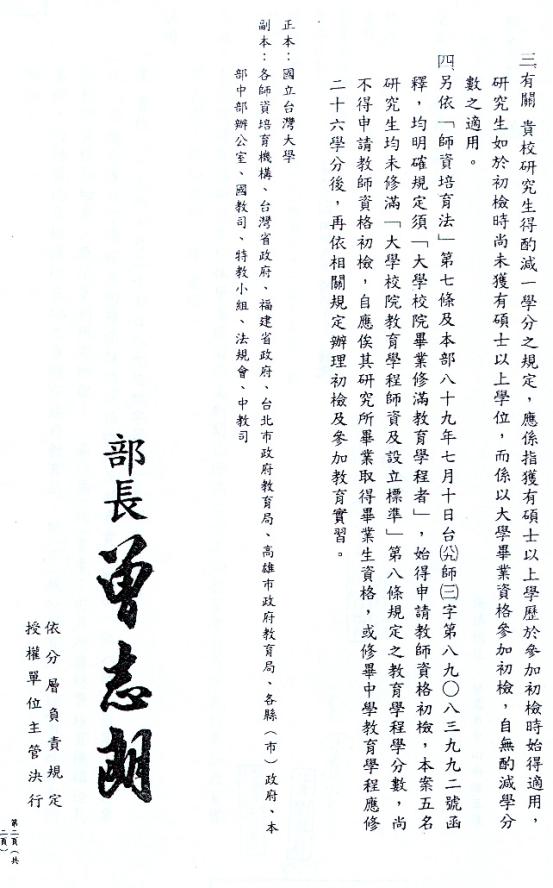 三、有關　貴校研究生得酌減一學分之規定，應係指獲有碩士以上學歷於參加初檢時始得適用，
研究生如於初檢時尚未獲有碩士以上學位，而係以大學畢業資格參加初檢，自無酌減學分
數之適用。
四、另依「師資培育法」第七條及本部八十九年七月十日台㈸師㈢字第八九〇八三九九二號函
釋，均明確規定須「大學校院畢業修滿教育學程者」，始得申請教師資格初檢，本案五名
研究生均未修滿「大學校院教育學程師資及設立標準」第八條規定之教育學程學分數，尚
不得申請教師資格初檢，自應俟其研究所畢業取得畢業生資格，或修畢中學教育學程應修
二十六學分後，再依相關規定辦理初檢及參加教育實習。
正本：國立台灣大學
副本：各師資培育機構、台灣省政府、福建省政府、台北市政府教育局、高雄市政府教育局、各縣（市）政府、本
部中部辦公室、國教司、特教小組、法規會、中教司
部長曾志朗
依分層負責規定
授權單位主管決行
第二頁（共
二頁）